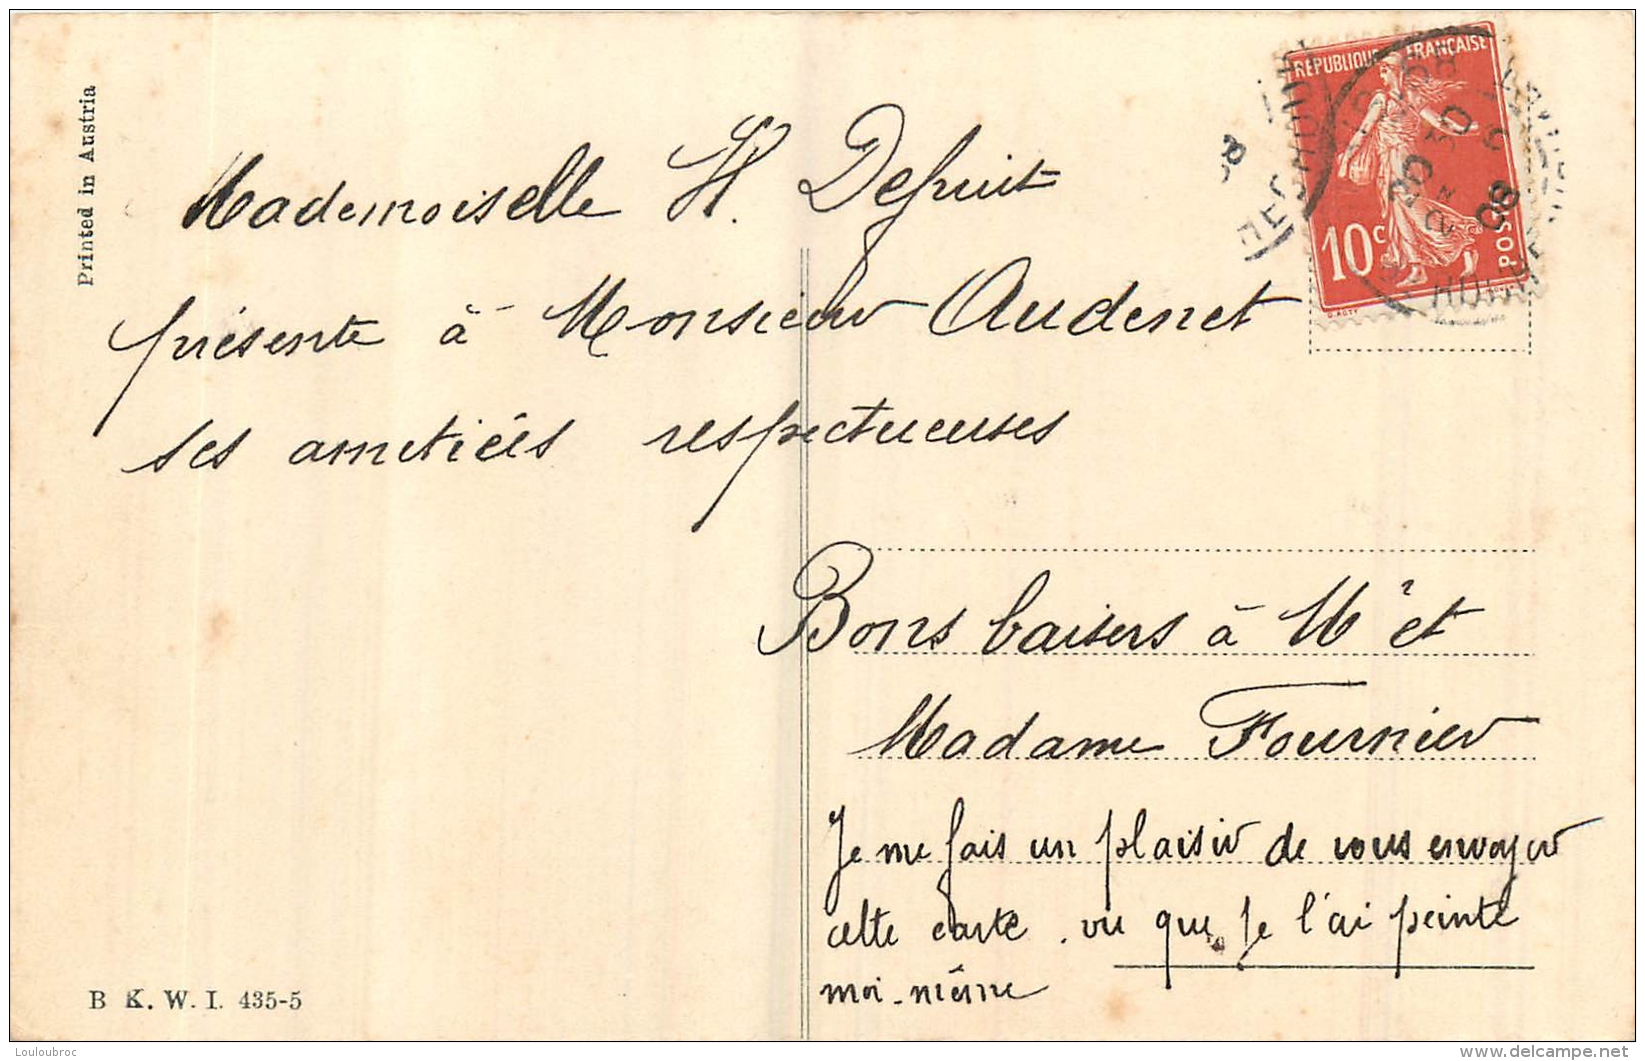 Printed in Austria
Mademoiselle H. Defruit
présente à Monsieur Audenet
ses ametiées respectueuses
REPUBLIQUE FRANÇAISE
10c
POSTES
O. ROTY
08
Bons baisers à Mr et
Madame Fournier
Je me fais un plaisir de vous envoyer
cette carte. vu que je l'ai peinte
moi-même
B K. W. I. 435-5
Louloubroc
delcampe.net